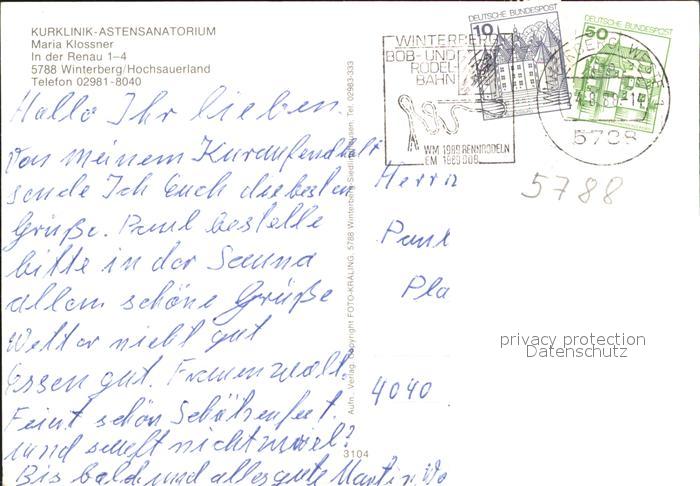 KURKLINIK-ASTENSANATORIUM
Maria Klossner
In der Renau 1-4
5788 Winterberg/Hochsauerland
Telefon 02981-8040
Hallo Ihr lieben.
Von meinem Kuraufendhalt
sende Ich Euch die besten
Grüße. Paul bestelle
bitte in der Sauna
allen schöne Grüße
Wetter nicht gut
Essen gut. Frauen
Feiert schön Schützenfest.
und nicht
Bis bald und alles gute Martin
Aufn., Verlag, Copyright FOTO-KRÄLING, 5788 Winterberg-Siedlinghausen, Tel. 02983-333
3104
DEUTSCHE BUNDESPOST
10
DEUTSCHE BUNDESPOST
50
WINTERBERG
BOB- UND
RODEL-
BAHN
WM 1989 RENNRODELN
EM 1989 BOB
5788
5788
Herrn
Paul
Pla
4040
privacy protection
Datenschutz